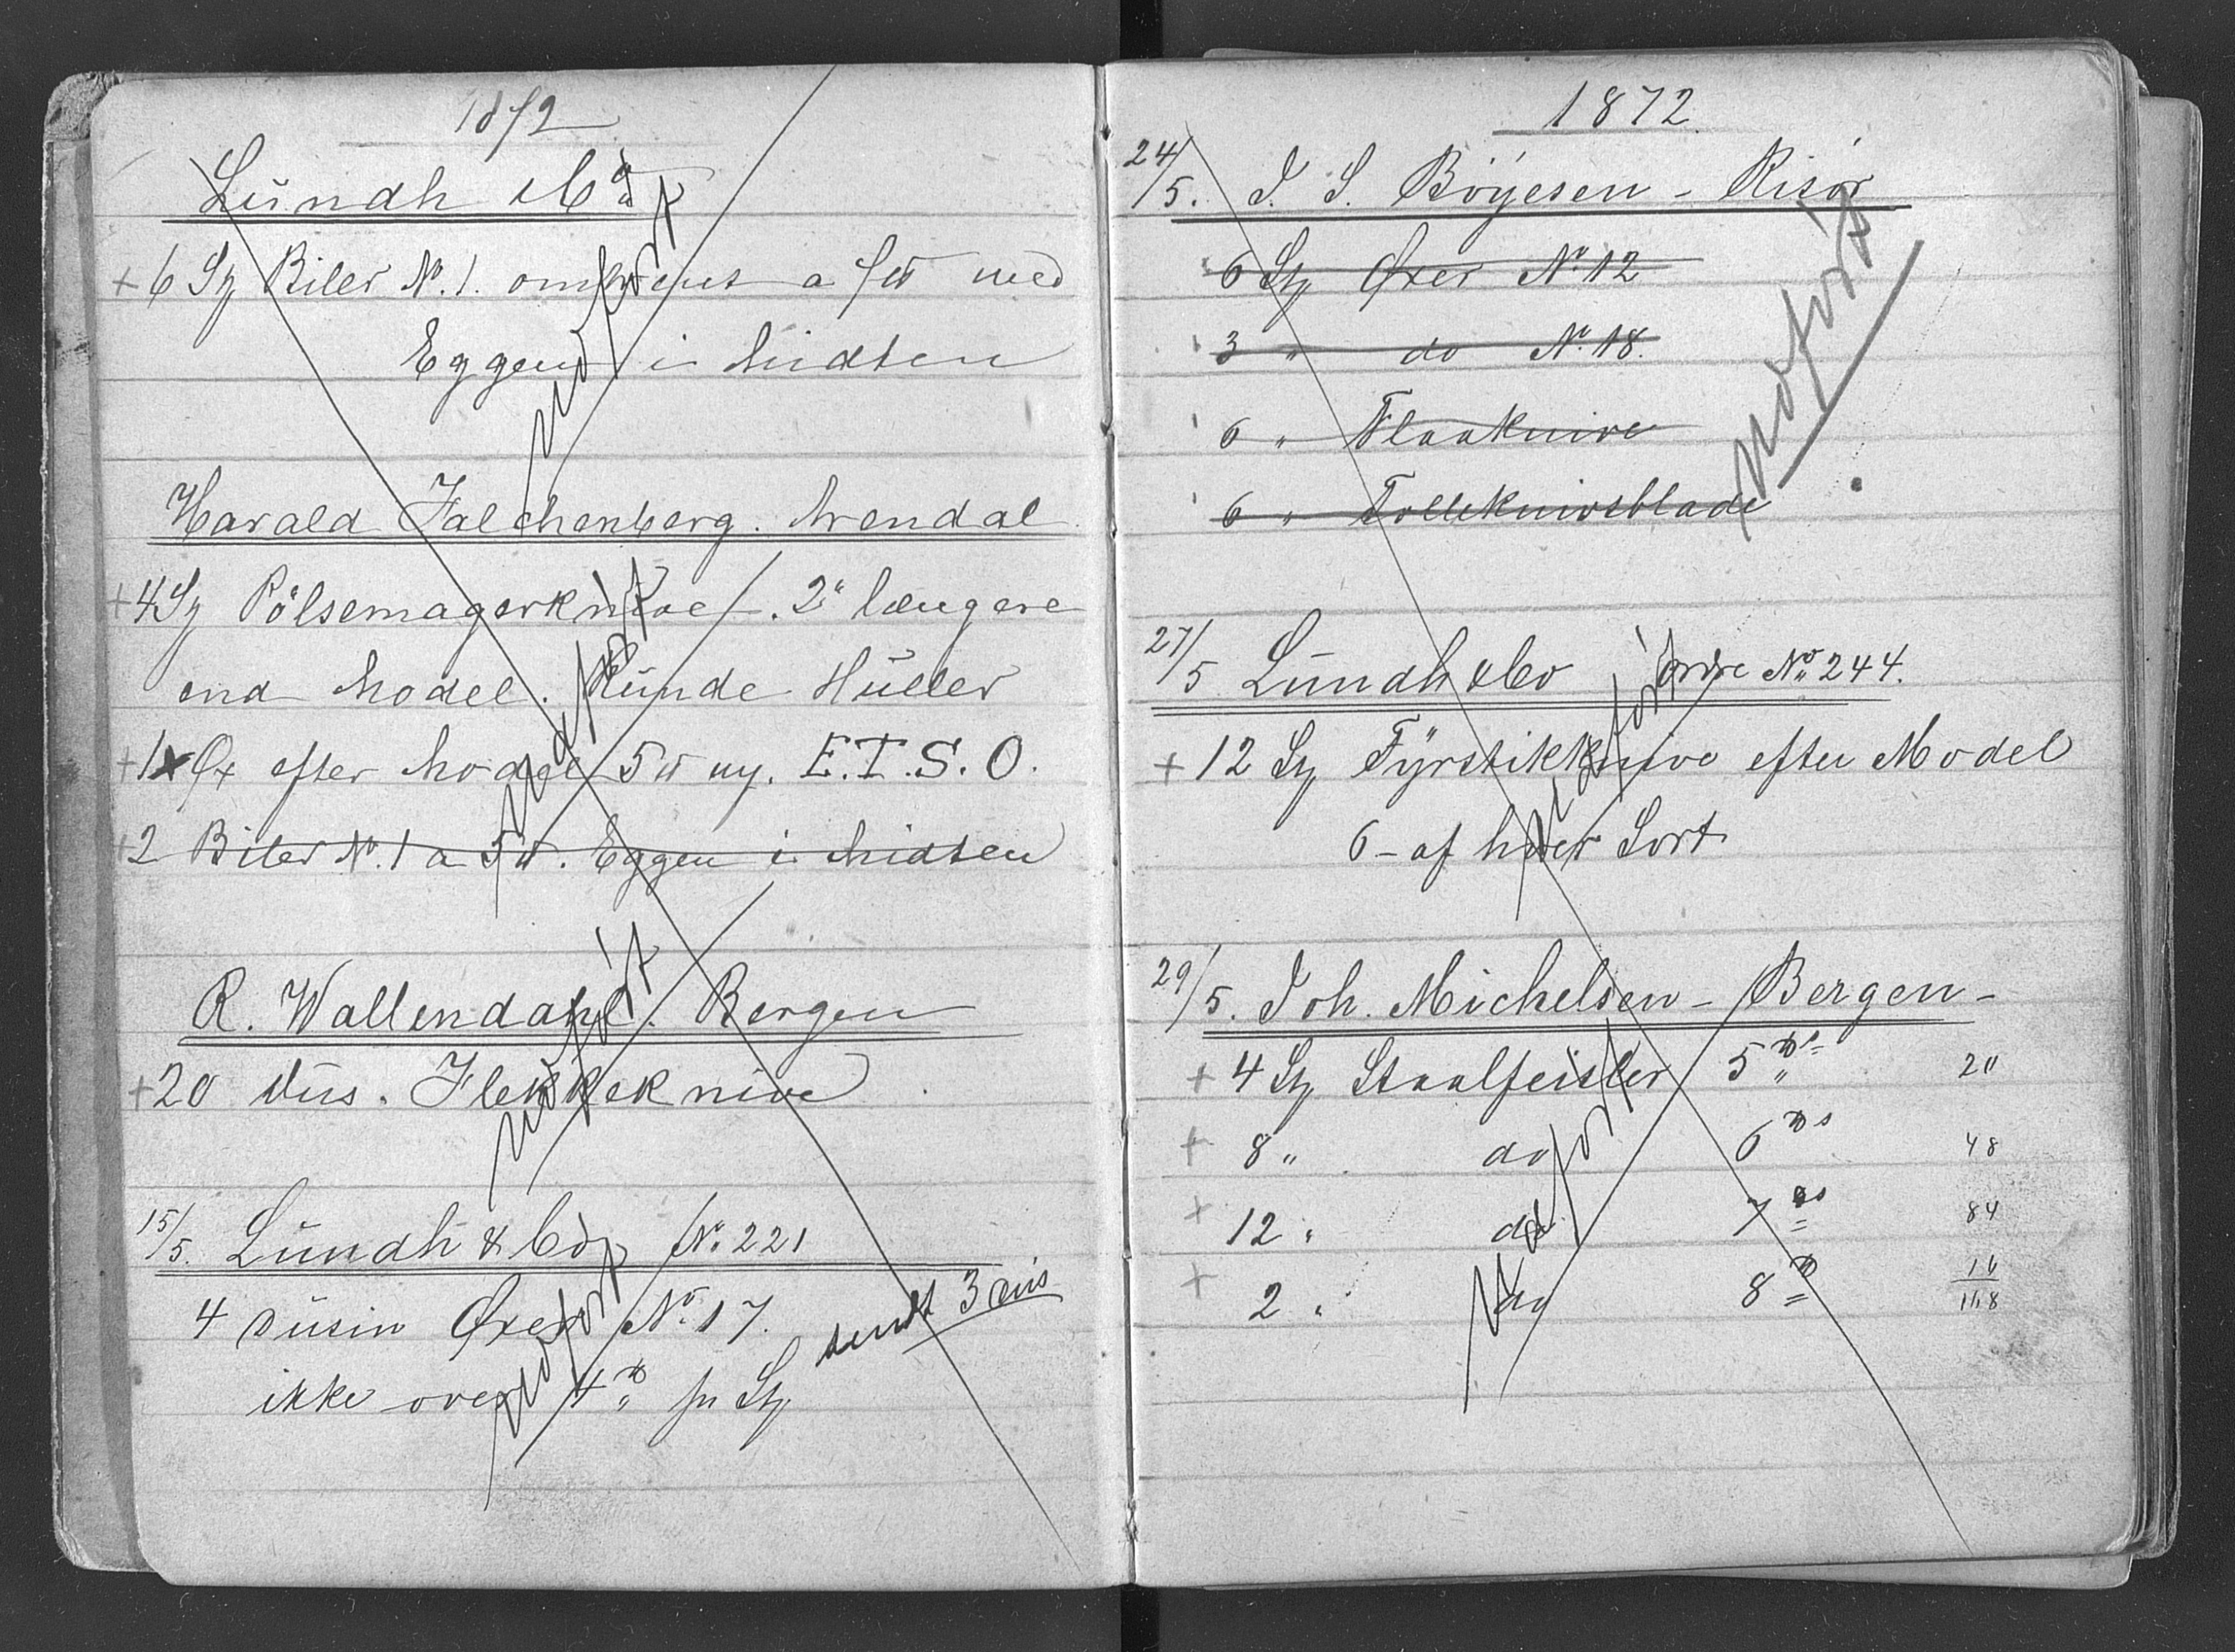 1872
Lundh & Co
+ 6 St Biler No. 1. omtrent a med
Eggen i Midten
udført
Harald Falchenberg. Arendal
+ 4 St Pölsemagerknive. 2" længere
end Model. Runde Huller
+ 1 Øx efter Model 5 ny. E.T.S.O.
+ 2 Biler No. 1 a 5. Eggen i Midten
udført
R. Wallendahl. Bergen
+ 20 Dus. Flekkeknive
udført
15/5. Lundh & Co No. 221
4 Dusin Øxer No. 17. sendt 3 Dus
ikke over 4 pr St
udført
1872.
24/5. I. S. Böyesen - Risør
6 St Øxer No. 12
3 " do No. 18.
6 " Flaaknive
6 " Tolleknivsblade
udført
27/5 Lundh & Co Ordre No. 244.
+ 12 St Fyrstikknive efter Model
6 - af hver Sort
udført
29/5. Joh. Michelsen - Bergen -
+ 4 St Staalfeisler 5 20
+ 8 " do 6 48
+ 12 " do 7 84
+ 2 " do 8 16
168
udført